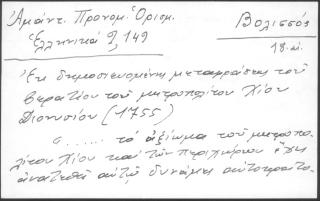 Ἀμάντ. Προνομ. Ὁρισμ.
Ἑλληνικά 9, 149
Βολισσός
18 αἰ.
Ἐκ δημοσιευομένης μεταφράσεως τοῦ
βερατίου τοῦ μητροπολίτου Χίου
Διονυσίου (1755)
«..... τὸ ἀξίωμα τοῦ μητροπο-
λίτου Χίου καὶ τῶν περιχώρων ἔχει
ἀνατεθῆ αὐτῷ δυνάμει αὐτοκρατο-